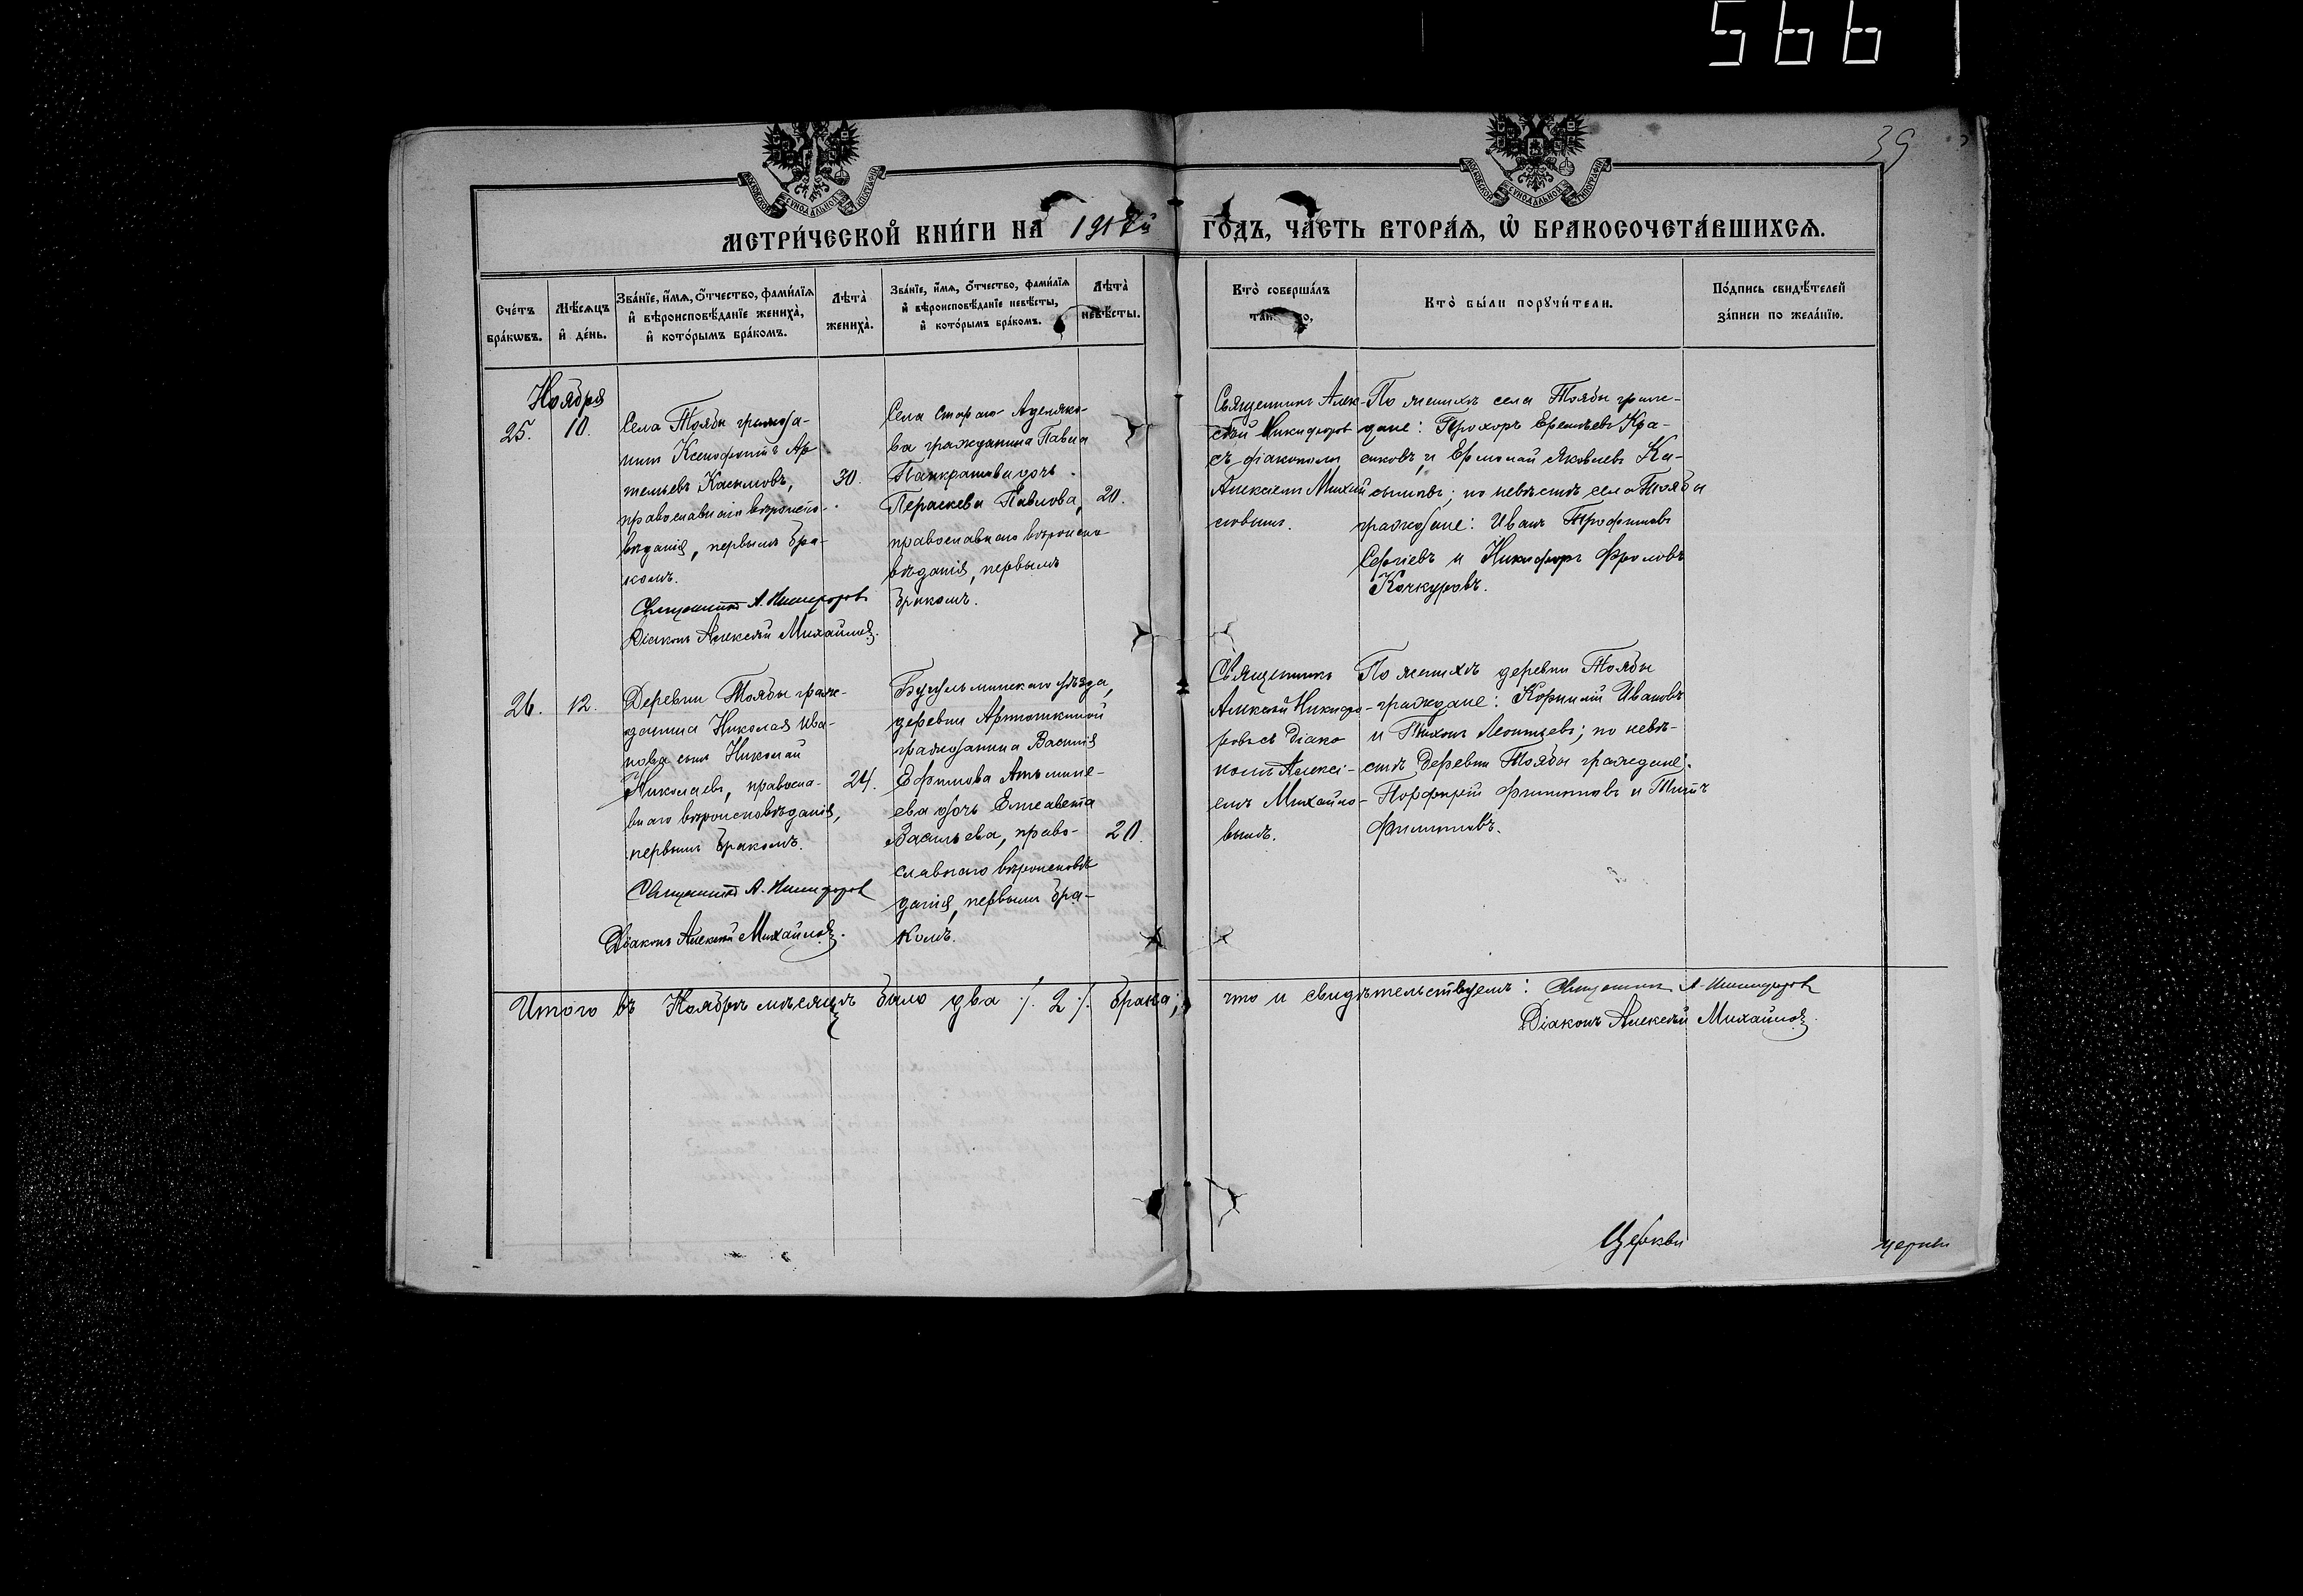 5661
39
МЕТРИ́ЧЕСКОЙ КНИ́ГИ НА 1917й ГО́ДЪ, ЧА́СТЬ ВТОРА́Я, Ѡ БРАКОСОЧЕТА́ВШИХСЯ.
Сче́тъ бра́кѡвъ.
Мѣ́сяцъ и́ де́нь.
Зва́нїе, и́мя, о́тчество, фами́лїя и́ вѣроисповѣ́данїе жениха̀, и́ кото́рымъ бра́комъ.
Лѣта̀ жениха̀.
Зва́нїе, и́мя, о́тчество, фами́лїя и́ вѣроисповѣ́данїе невѣ́сты, и́ кото́рымъ бра́комъ.
Лѣта̀ невѣ́сты.
Кто̀ соверша́лъ
Кто̀ бы́ли порꙋчи́тели.
По́дпись свидѣ́телей за́писи по жела́нїю.
Ноября
25.
10.
Села Тоябы гражда-
нинъ Ксенофонтъ Ар-
темьевъ Касымовъ,
православнаго вѣроиспо-
вѣданія, первымъ бра-
комъ.
30.
Села Стараго Аделяко-
ва гражданина Павла
Панкратова дочь
Параскева Павлова,
православнаго вѣроиспо-
вѣданія, первымъ
бракомъ.
20.
Священникъ А. Никифоровъ
Діаконъ Алексѣй Михайловъ.
Священникъ Алек-
сѣй Никифоровъ
съ діакономъ
Алексіемъ Михай
ловымъ.
По женихѣ села Тоябы граж-
дане: Прохоръ Еремѣевъ Кра-
сновъ и Ермолай Яковлевъ Ка-
сымовъ; по невѣстѣ села Тоябы
граждане: Иванъ Трофимовъ
Сергіевъ и Никифоръ Фроловъ
Кочкуровъ.
26.
12.
Деревни Тоябы граж-
данина Николая Ива-
нова сынъ Николай
Николаевъ, правосла-
внаго вѣроисповѣданія,
первымъ бракомъ.
24.
Бугульминскаго уѣзда,
деревни Артюшкиной
гражданина Василія
Ефимова
дочь Елисавета
Васильева, право-
славнаго вѣроисповѣ
данія, первымъ бра-
комъ.
20.
Священникъ А. Никифоровъ
Діаконъ Алексѣй Михайловъ.
Священникъ
Алексѣй Никифо-
ровъ съ діако
номъ Алексі-
емъ Михайло-
вымъ.
По женихѣ деревни Тоябы
граждане: Корнилій Ивановъ
и Тихонъ Леонтьевъ; по невѣ-
стѣ деревни Тоябы граждане:
Порфирій Филипповъ и Титъ
Филипповъ.
Итого въ Ноябрѣ мѣсяцѣ было два ./. 2 ./. брака; что и свидѣтельствуемъ: Священникъ А. Никифоровъ
Діаконъ Алексѣй Михайловъ.
Церкви
церкви